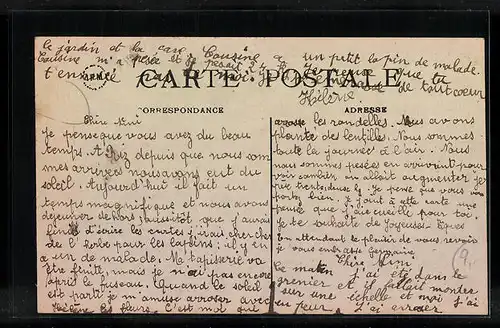 le jardin et la cave. Cousine a un petit lapin de malade.
Cousine m'a pesée et je pesais
t'embrasse de tout cœur
Hélène
CARTE POSTALE
CORRESPONDANCE
ADRESSE
Chère Mimi
je pense que vous avez du beau
temps. A depuis que nous som
mes arrivées nous avons eut du
soleil. Aujourd'hui il fait un
temps magnifique et nous avons
déjeuner dehors, aussitôt que j'aurais
finis d'écrire les cartes j'irais chercher
de l'herbe pour les lapins; il y en
a un de malade. Ma tapisserie va
être finite, mais je n'ai pas encore
après le fuseau. Quand le soleil
est parti je m'amuse arroser avec
Hélène les fleurs. C'est moi qui
arrose les rondelles. Nous avons
planté des lentilles. Nous sommes
toute la journée à l'air. Nous
nous sommes pesées en arrivent pour
voir combien on allait augmenter je
Je pense que vous vous
portez bien. je joint à cette carte une
pensé que j'ai cueillie pour toi.
je te souhaite de joyeuses Pâques
En attendant le plaisir de vous revoir
je vous embrasse Germaine
Chère Mimi
Ce matin j'ai été dans le
grenier et il fallait monter
sur une échelle et moi j'ai
eu peur. J'ai arroser